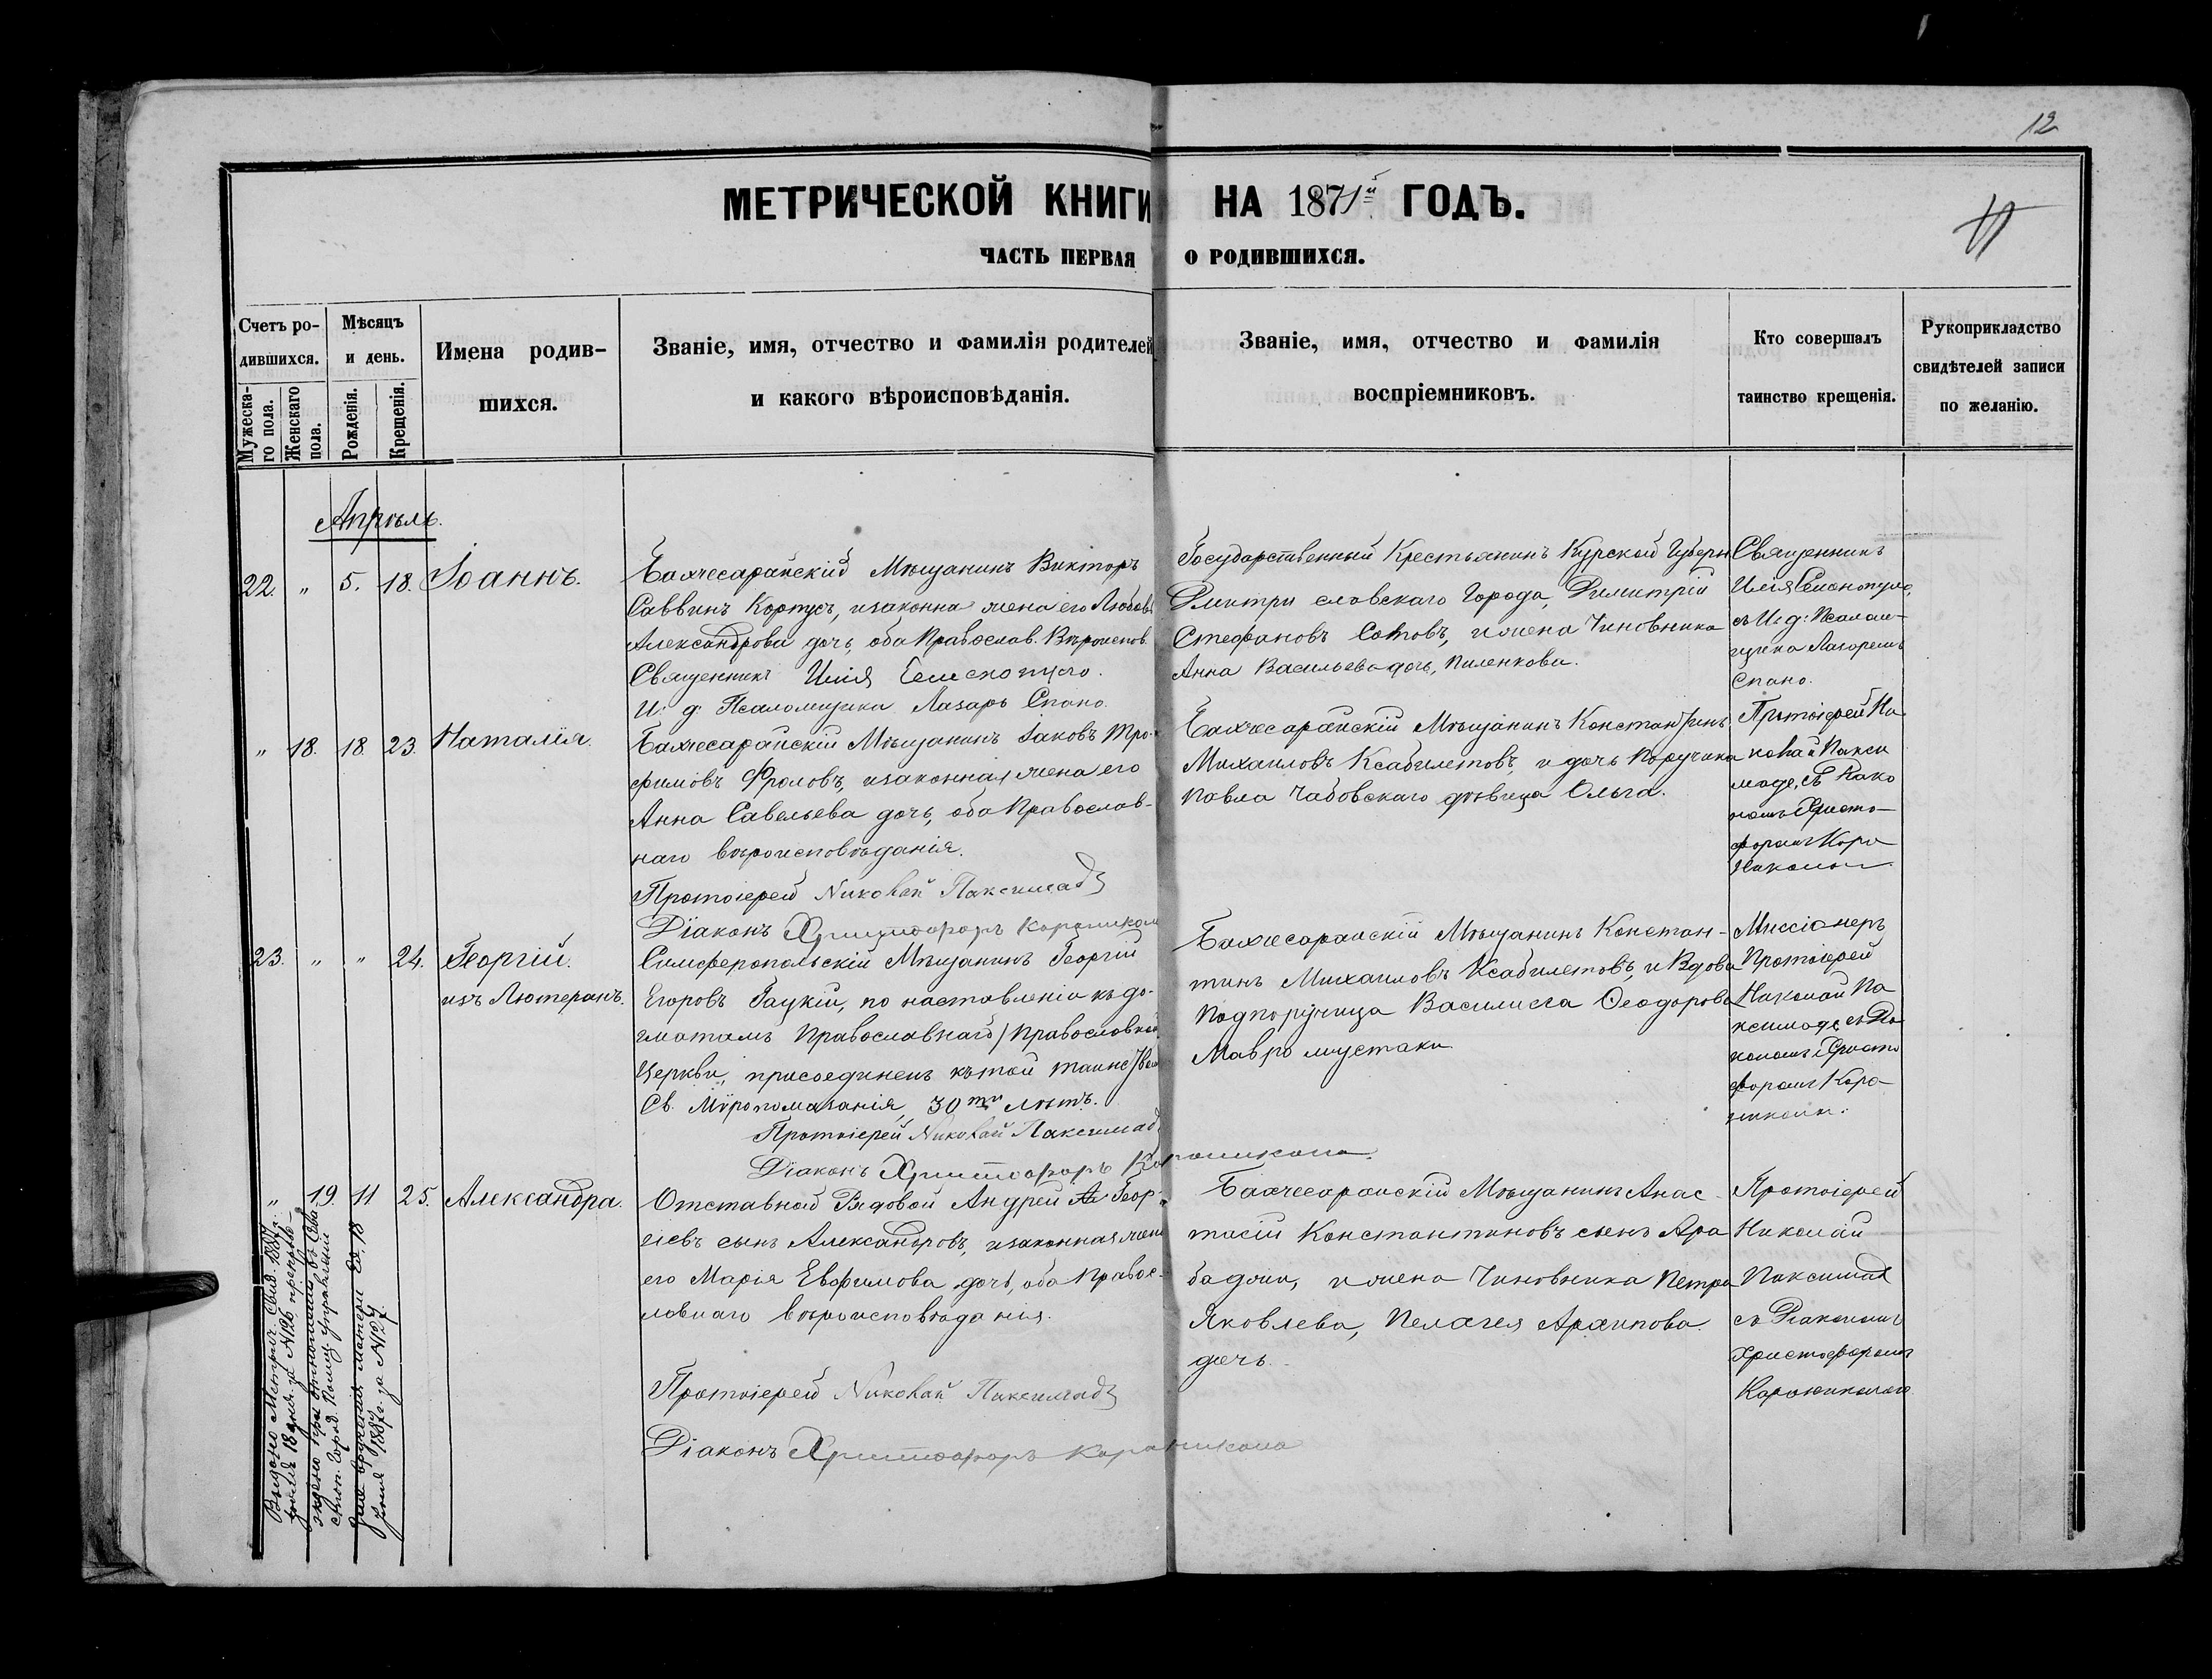 12
МЕТРИЧЕСКОЙ КНИГИ НА 1871й ГОДЪ.
ЧАСТЬ ПЕРВАЯ О РОДИВШИХСЯ.
Счетъ ро-
дившихся.
Мужеска-
го пола.
Женскаго
пола.
Мѣсяцъ
и день.
Рожденія.
Крещенія.
Имена родив-
шихся.
Званіе, имя, отчество и фамилія родителей
и какого вѣроисповѣданія.
Званіе, имя, отчество и фамилія
воспріемниковъ.
Кто совершалъ
таинство крещенія.
Рукоприкладство
свидѣтелей записи
по желанію.
Апрѣль.
22. " 5. 18. Іоаннъ.
Бахчесарайскій Мѣщанинъ Викторъ
Саввинъ Кортусъ, изаконна жена его Любовь
Александрова дочь, оба Православ. Вѣроисповѣ.
Священникъ Илія
И. д. Псаломщика Лазарь Спано.
Государственный Крестьянинъ Курской Губерн
Дмитри евскаго Города, Димитрій
Стефановъ Сотовъ, и жена Чиновника
Анна Васильева дочь, Пиленкова.
Священникъ
Илія
съ И. д. Псалом-
щика Лазаремъ
Спано.
" 18. 18 23. Наталія.
Бахчесарайскій Мѣщанинъ Іаковъ Тро-
фимовъ Фроловъ, изаконная жена его
Анна Савельева дочь, оба Православ-
наго вѣроисповѣданія.
Протоіерей Николай Паксимадѣ
Діаконъ Христофоръ Караникола
Бахчесарайскій Мѣщанинъ Константинъ
Михаиловъ Ксабилетовъ, и дочь Поручика
Павла Чабовскаго дѣвица Ольга.
Протоіерей Ни
колай Пакси
маде, съ Діако
номъ Христо-
форомъ Кара
николою
23. " " 24. Георгій.
изъ Лютеранъ.
Симферопольскій Мѣщанинъ Георгій
Егоровъ Гацкій, по наставленіи къ до-
гматамъ Православнаго Православной
Церкви, присоединенъ къ той таинствомъ
Св. Мѵропомазанія, 30ти лѣтъ.
Протоіерей Николай Паксимадѣ
Діаконъ Христофоръ Караникола.
Бахчесарайскій Мѣщанинъ Констан-
тинъ Михаиловъ Ксабилетовъ, и Вдова
Подпоручица Василисса Ѳеодорова
Мавромустаки
Миссіонеръ
Протоіерей
Николай Па
ксимаде съ Діа
кономъ Христо
форомъ Кара-
николою.
" 19. 11 25. Александра.
Отставной Рядовой Андрей Ал Геор-
гіевъ сынъ Александровъ, изаконная жена
его Марія Евфимова дочь, оба Правос-
лавнаго вѣроисповѣданія.
Протоіерей Николай Паксимадѣ
Діаконъ Христофоръ Караникола
Бахчесарайскій Мѣщанинъ Анас
тасій Константиновъ сынъ Ара
баджи, и жена Чиновника Петра
Яковлева, Пелагея Архипова
дочь.
Протоіерей
Николай
Паксимаде
съ Діакономъ
Христофоромъ
Караниколою
Выдано Метрич. Свид. 1887 г.
Іюня 18 дня за №126, препрово-
ждено при отношеніи въ Сева-
стоп. Город. Полиц. Управленіи
для врученія матери Ея, 18
Іюня 1887 г. за №127.